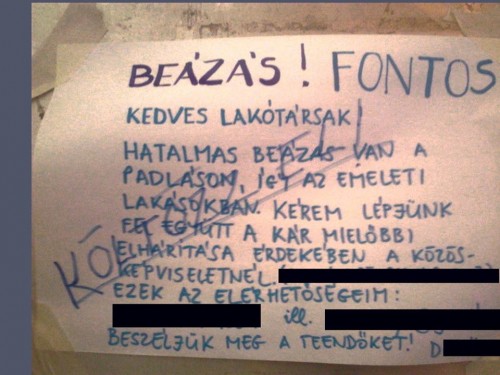 BEÁZÁS! FONTOS
KEDVES LAKÓTÁRSAK!
HATALMAS BEÁZÁS VAN A
PADLÁSON, ÍGY AZ EMELETI
LAKÁSOKBAN. KÉREM LÉPJÜNK
FEL EGYÜTT A KÁR MIELŐBBI
ELHÁRÍTÁSA ÉRDEKÉBEN A KÖZÖS-
KÉPVISELETNÉL.
EZEK AZ ELÉRHETŐSÉGEIM:
ill.
BESZÉLJÜK MEG A TEENDŐKET!